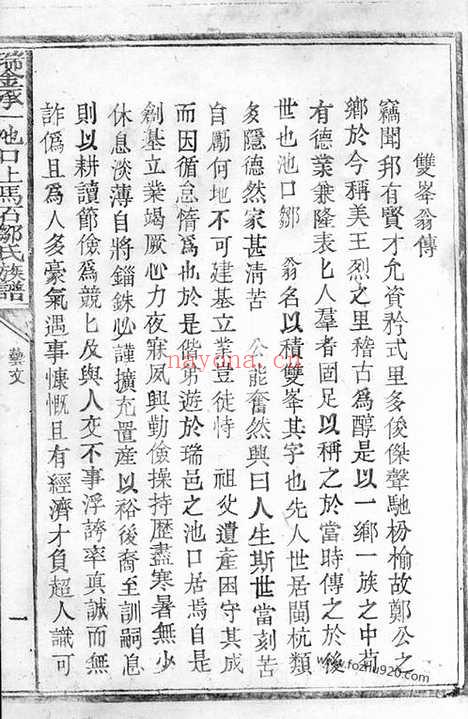 雙峯翁傳
竊聞邦有賢才允資矜式里多俊傑聲馳枌榆故鄭公之
鄉於今稱美王烈之里稽古爲醇是以一鄉一族之中苟
有德業兼隆表匕人羣者固足以稱之於當時傳之於後
世也池口鄒 翁名以積雙峯其字也先人世居閩杭類
多隱德然家甚清苦 公能奮然興曰人生斯世當刻苦
自勵何地不可建基立業豈徒恃 祖父遺產困守其成
而因循怠惰爲也於是偕弟遊於瑞邑之池口居焉自是
創基立業竭厥心力夜寐夙興勤儉操持歷盡寒暑無少
休息淡薄自將錙銖必謹擴充置產以裕後裔至訓嗣息
則以耕讀節儉爲競匕及與人交不事浮誇率真誠而無
詐僞且爲人多豪氣遇事慷慨且有經濟才負超人識可
瑞金承一池口上馬石鄒氏族譜
藝文
一
nayona.cn
www.fozhu920.com